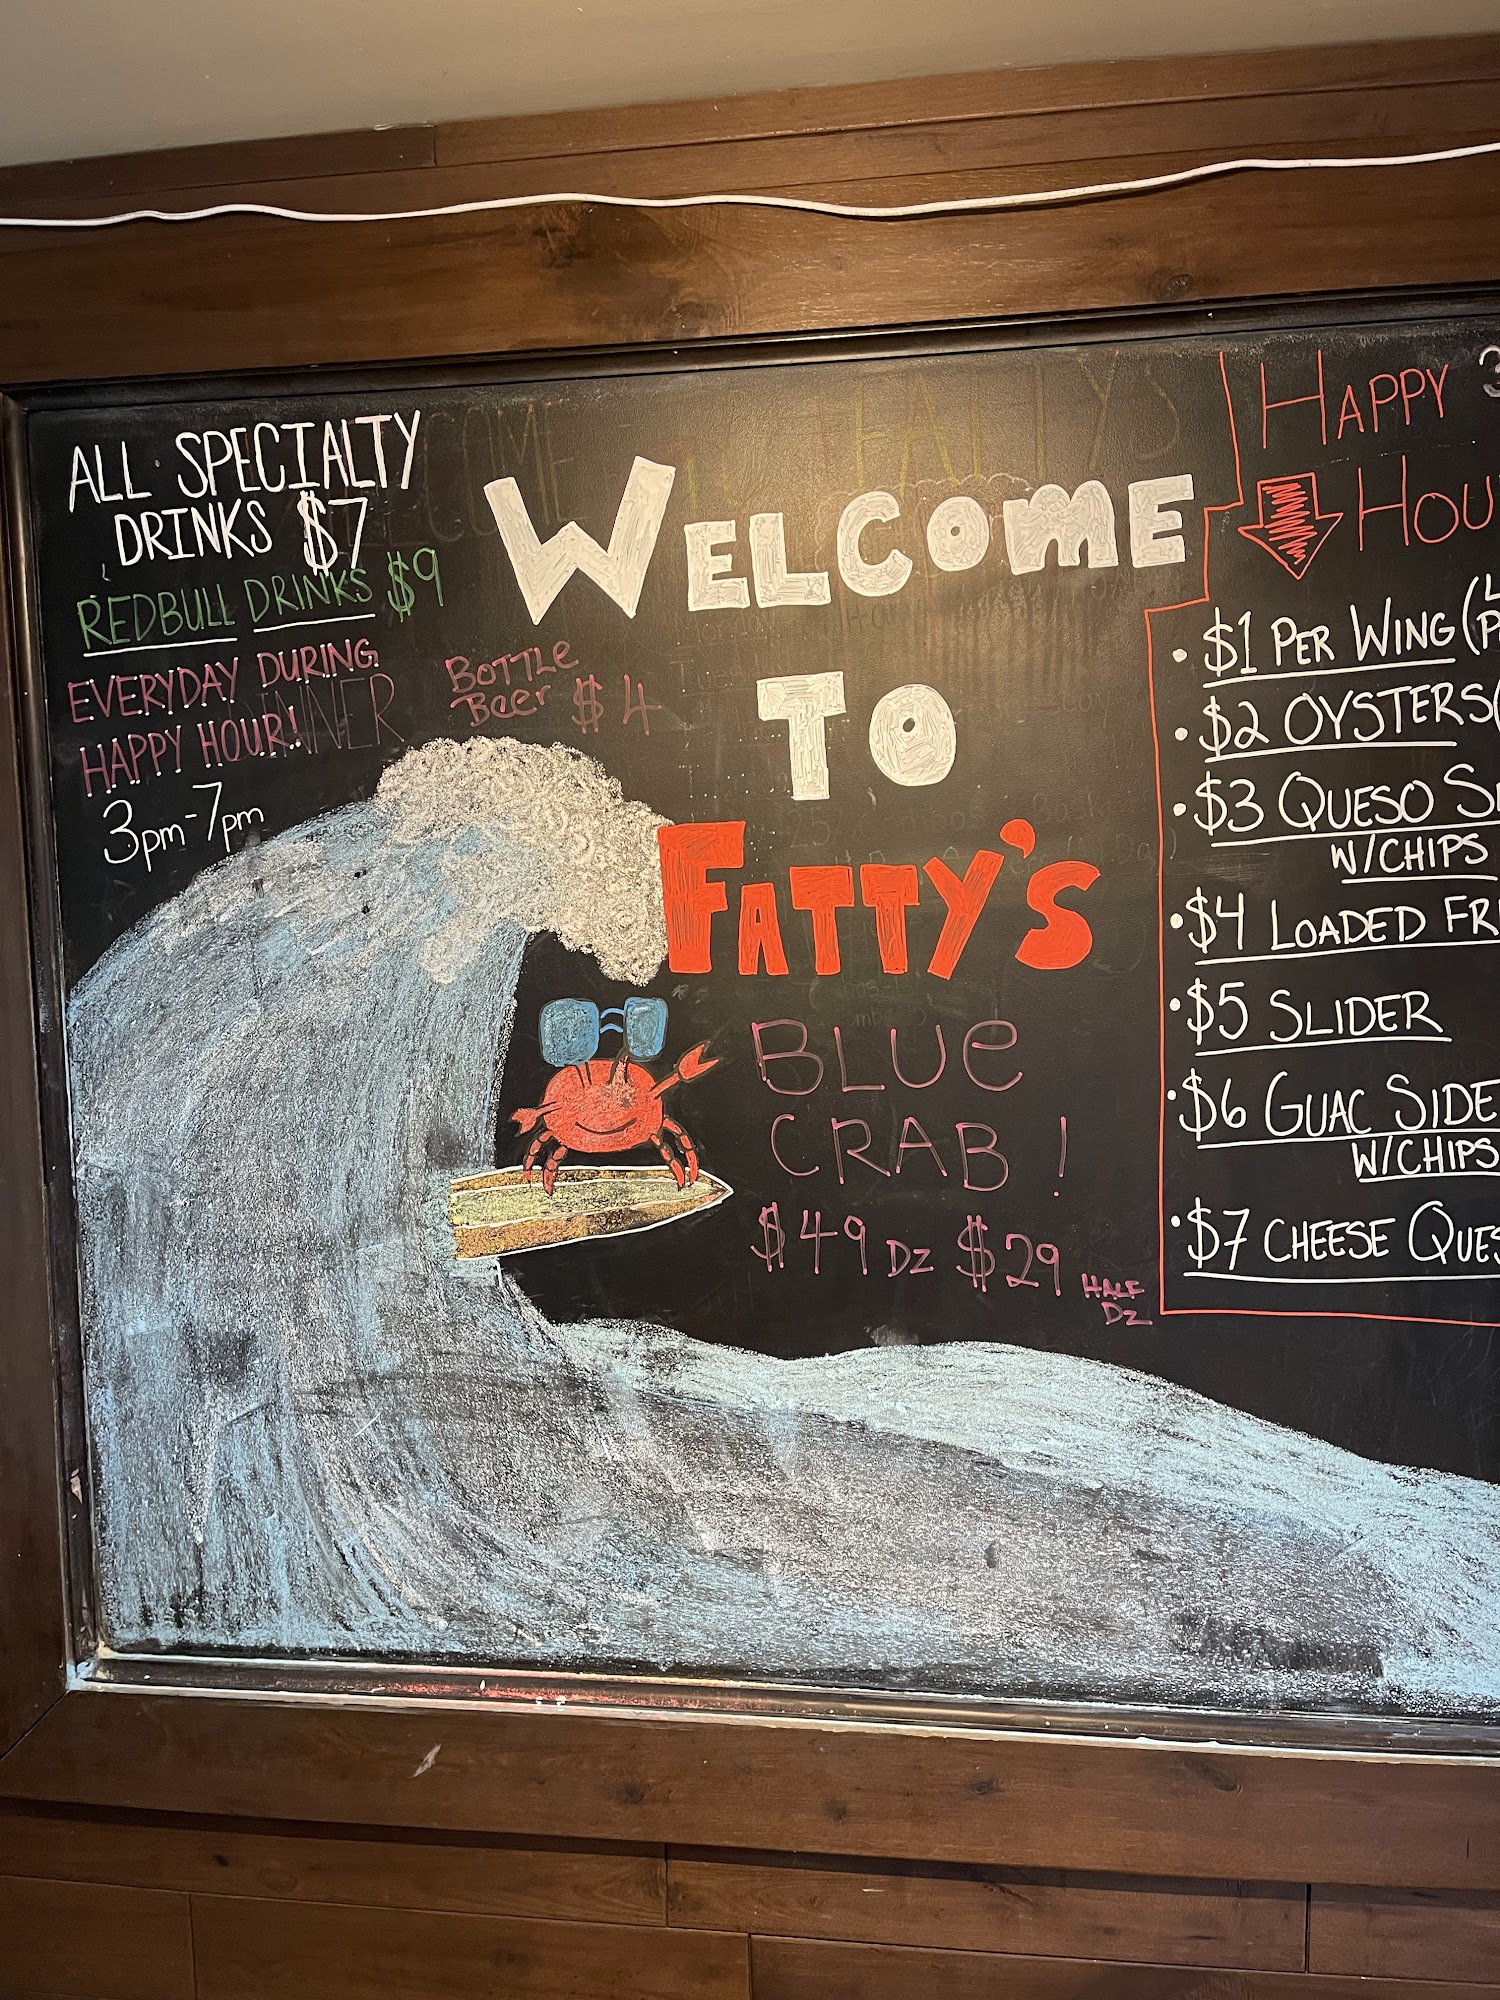 ALL SPECIALTY
DRINKS $7
REDBULL DRINKS $9
EVERYDAY DURING
HAPPY HOUR!
3pm-7pm
BOTTLE
Beer $4
WELCOME
TO
FATTY'S
BLUE
CRAB!
$49 DZ $29 HALF
DZ
HAPPY
HOU
• $1 PER WING (
• $2 OYSTERS (
• $3 QUESO
W/CHIPS
• $4 LOADED FR
• $5 SLIDER
• $6 GUAC SIDE
W/CHIPS
• $7 CHEESE QUES